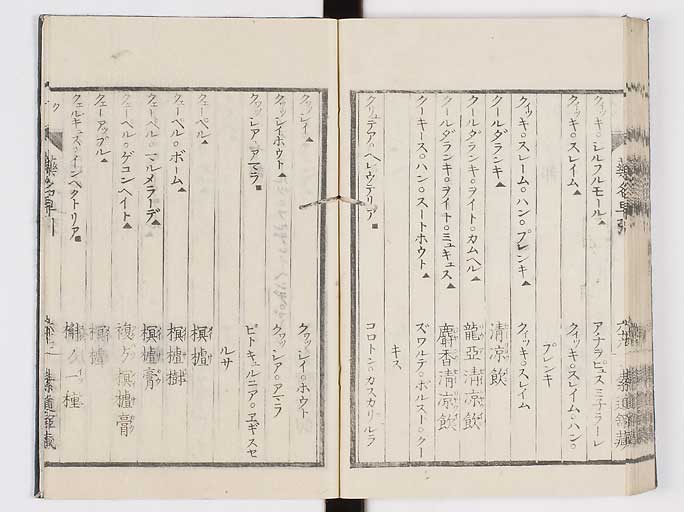 クィッキ。シルフルモール▲ アナラピュスミ子ラーレ
クィッキ。スレイム▲ クィッキ。スレイム。ハン。
プレンキ
クィッキ。スレーム。ハン。プレンキ▲ クィッキ。スレイム
クールダランキ▲ 清凉飲
クールダランキ。ヲイト。カムヘル▲ 龍亞清凉飲
クールダランキ。ヲイト。ミュキュス▲ 麝香清凉飲
クーキース。ハン。スートホウト▲ ズワルテ。ボルスト。クー
キス
クリュテア。ヘレウテリア■ コロトン。カスカリルラ
クヮッシイ▲ クヮッシイ。ホウト
クヮッシイホウト▲ クヮッシア。アマラ
クヮッシア。アマラ■ ピトキュルニア。ヱギスセ
ルサ
クェーペル▲ 榠樝
クェーペル。ボーム▲ 榠樝樹
クェーペル。マルメラーデ▲ 榠樝膏
クェーペル。ゲコンヘイト▲ 複方榠樝膏
クェーアップル▲ 榠樝
クェルキュス。インヘクトリア■ 槲久一種